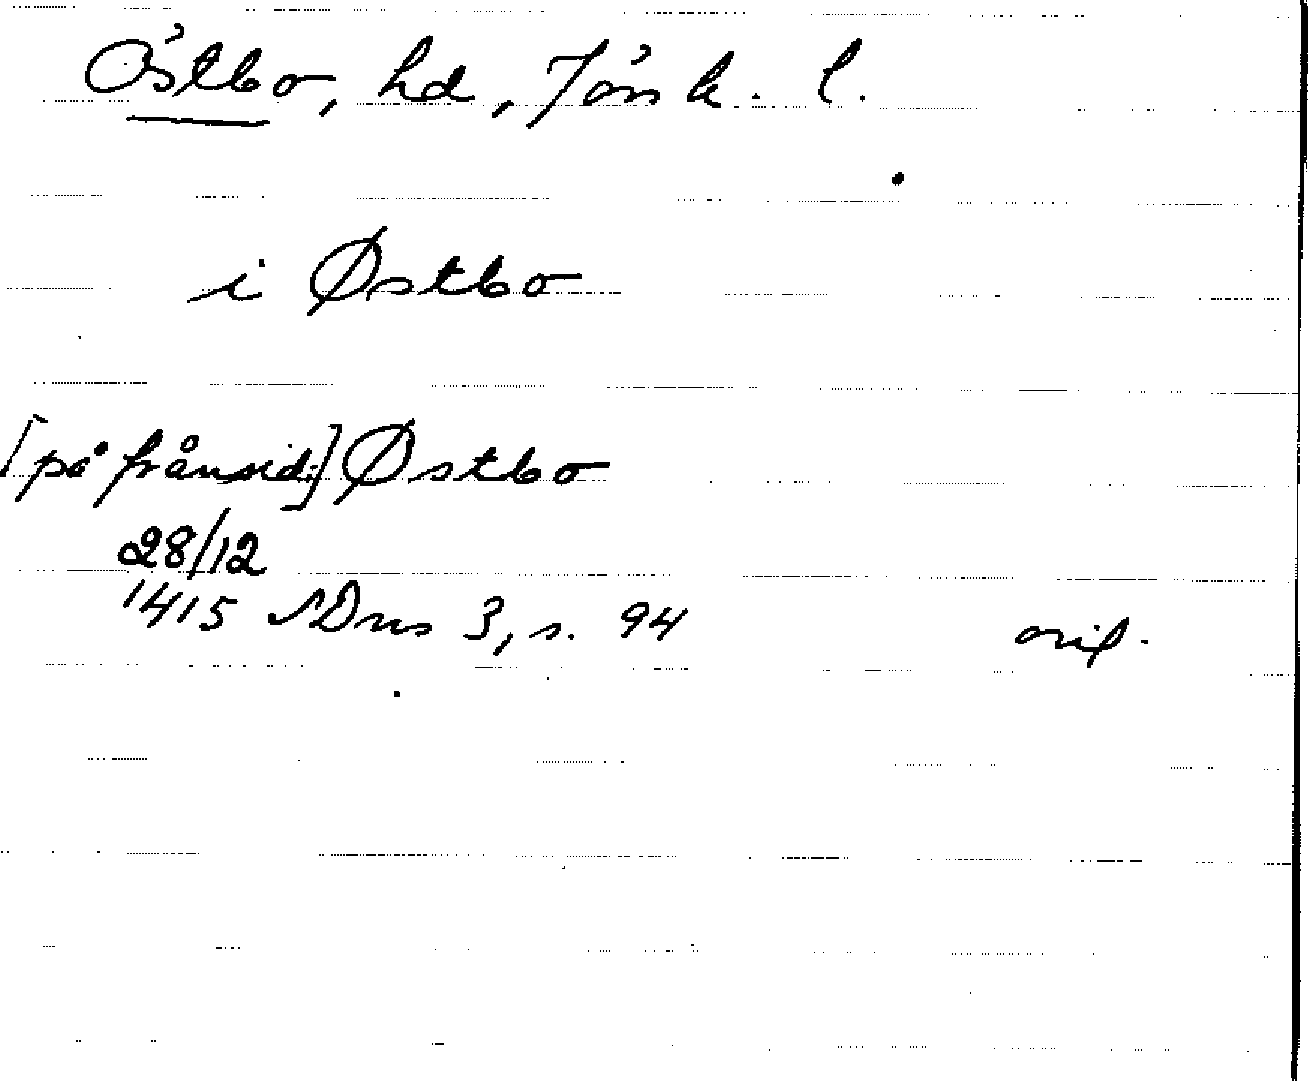 Östbo, hd, Jönk. l.
i Østbo
[på frånsid.] Østbo
28/12
1415 SDns 3, s. 94 orig.